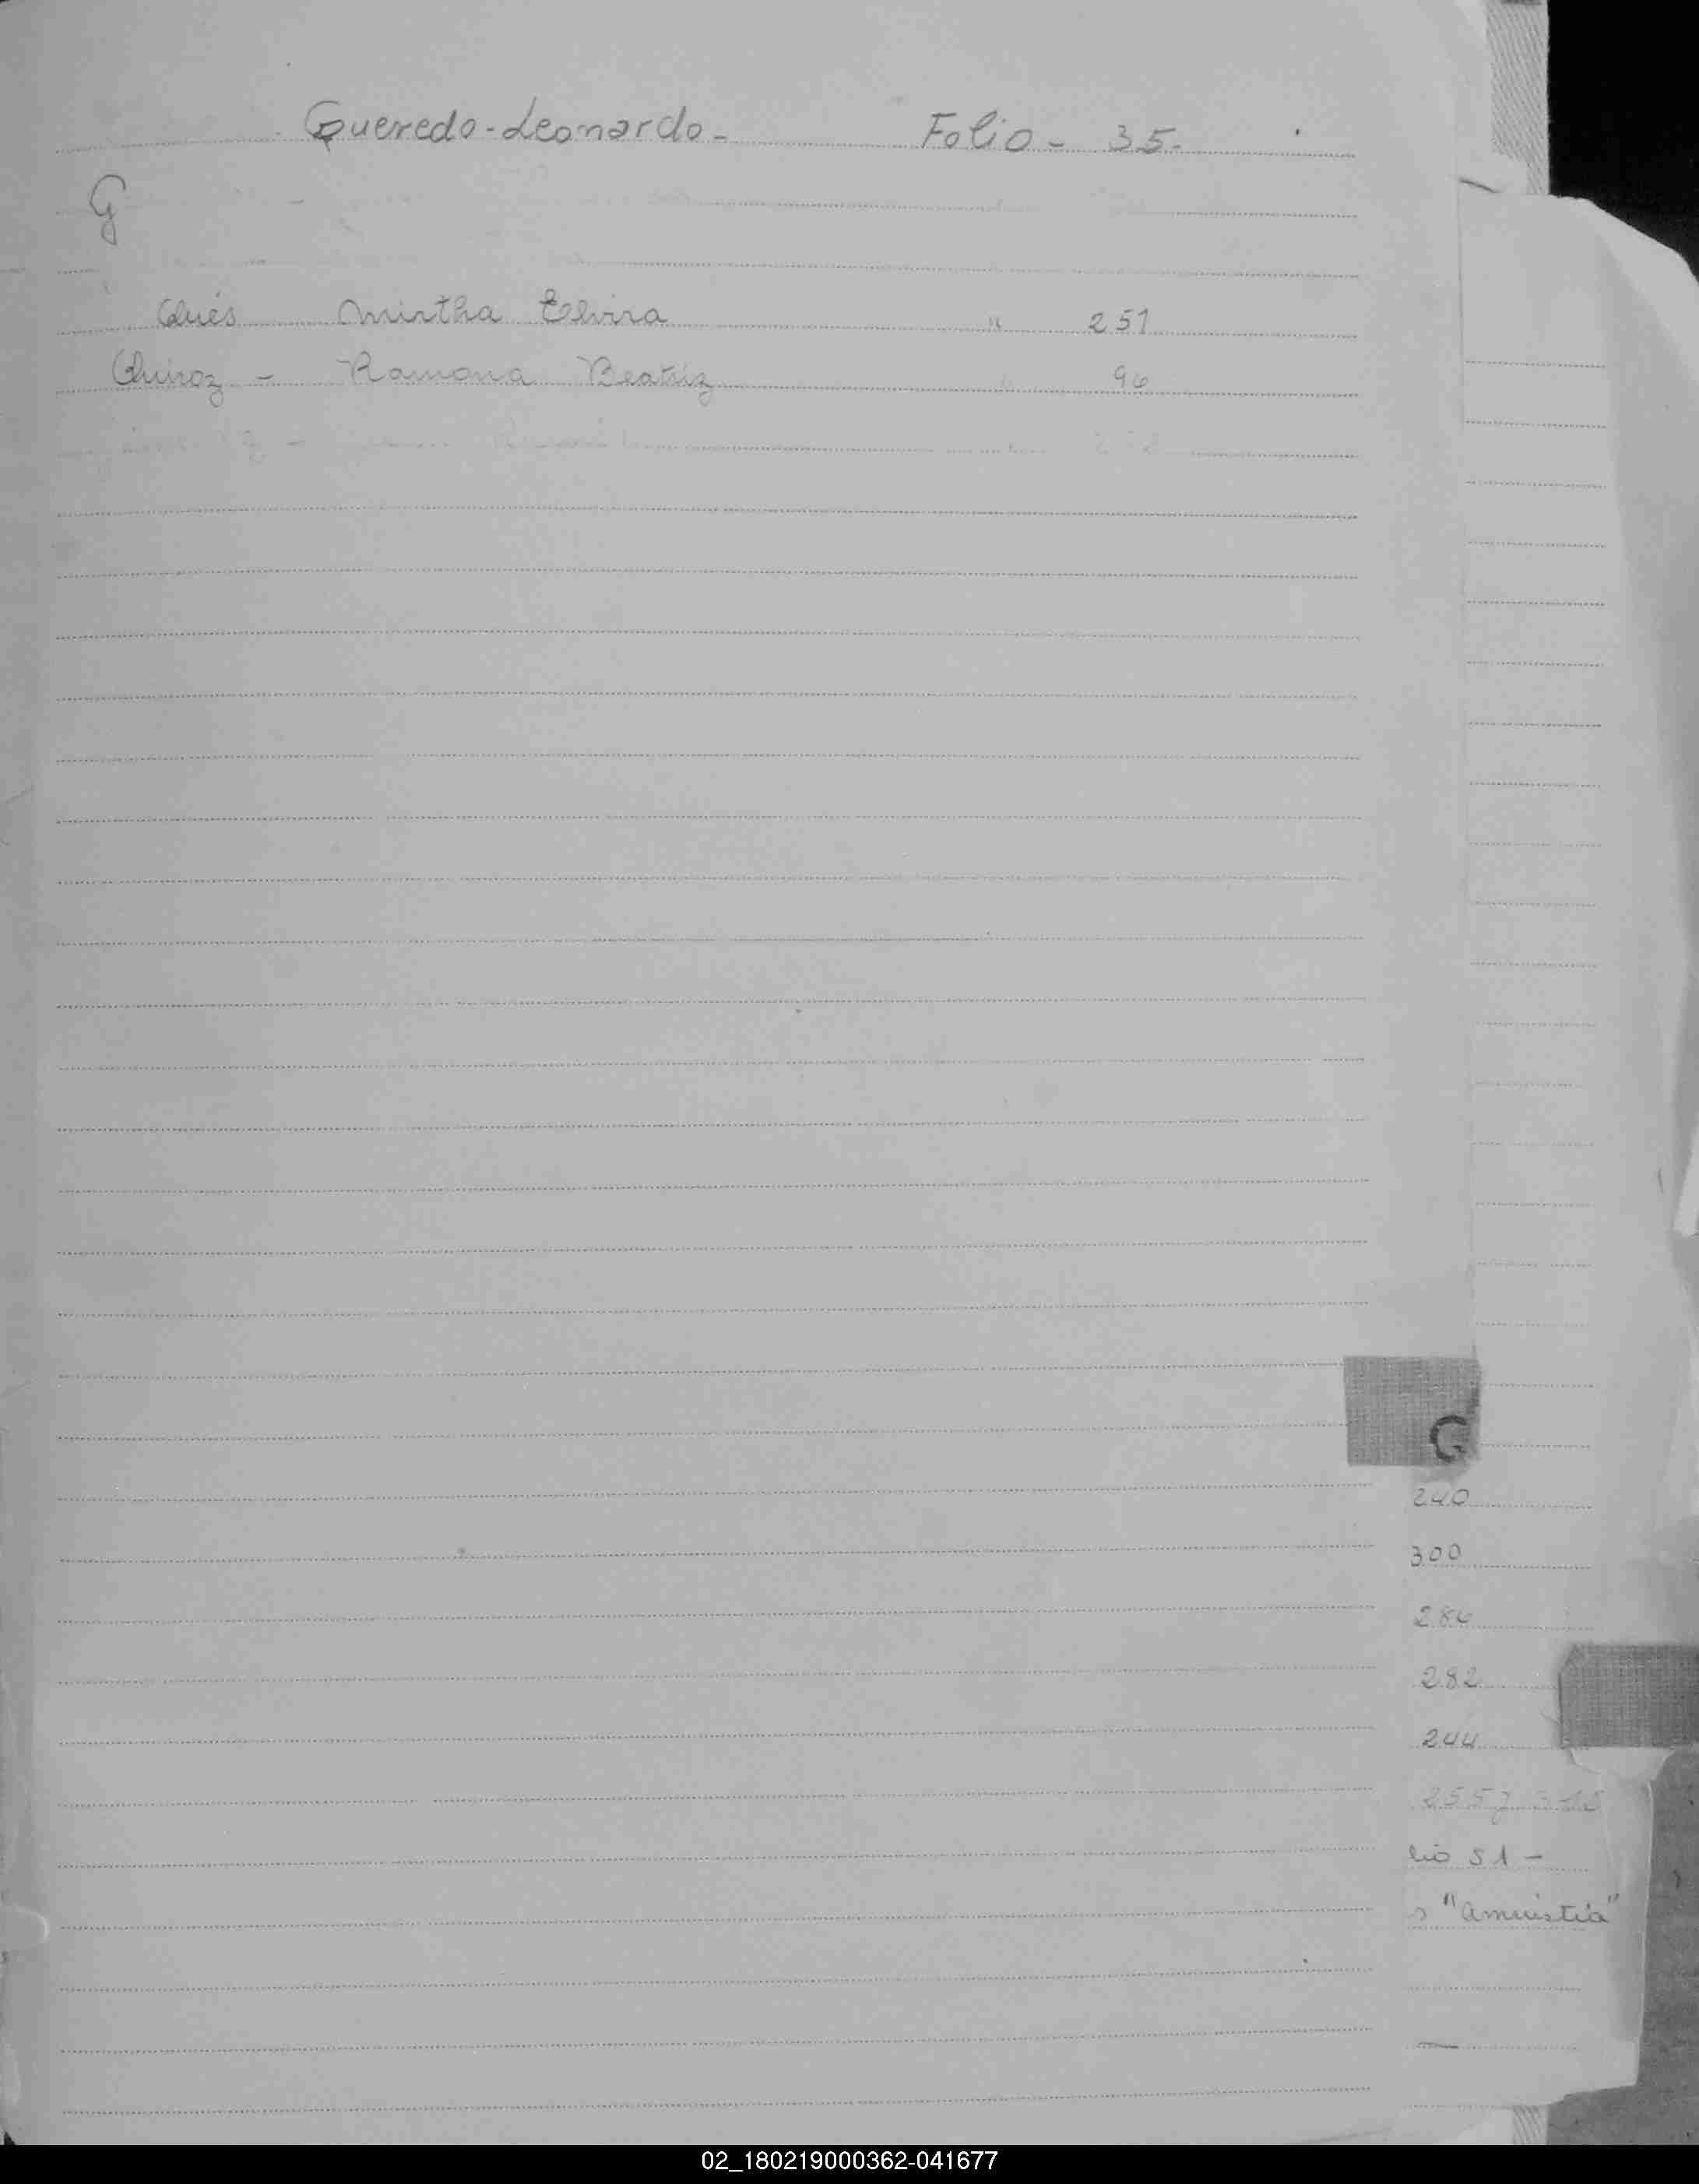 Queredo - Leonardo - Folio - 35 -
Q
Qués Mirtha Elvira " 251
Quiroz - Ramona Beatriz " 96
Q
240
300
286
282
244
lio 51 -
"amnistia"
02_180219000362-041677